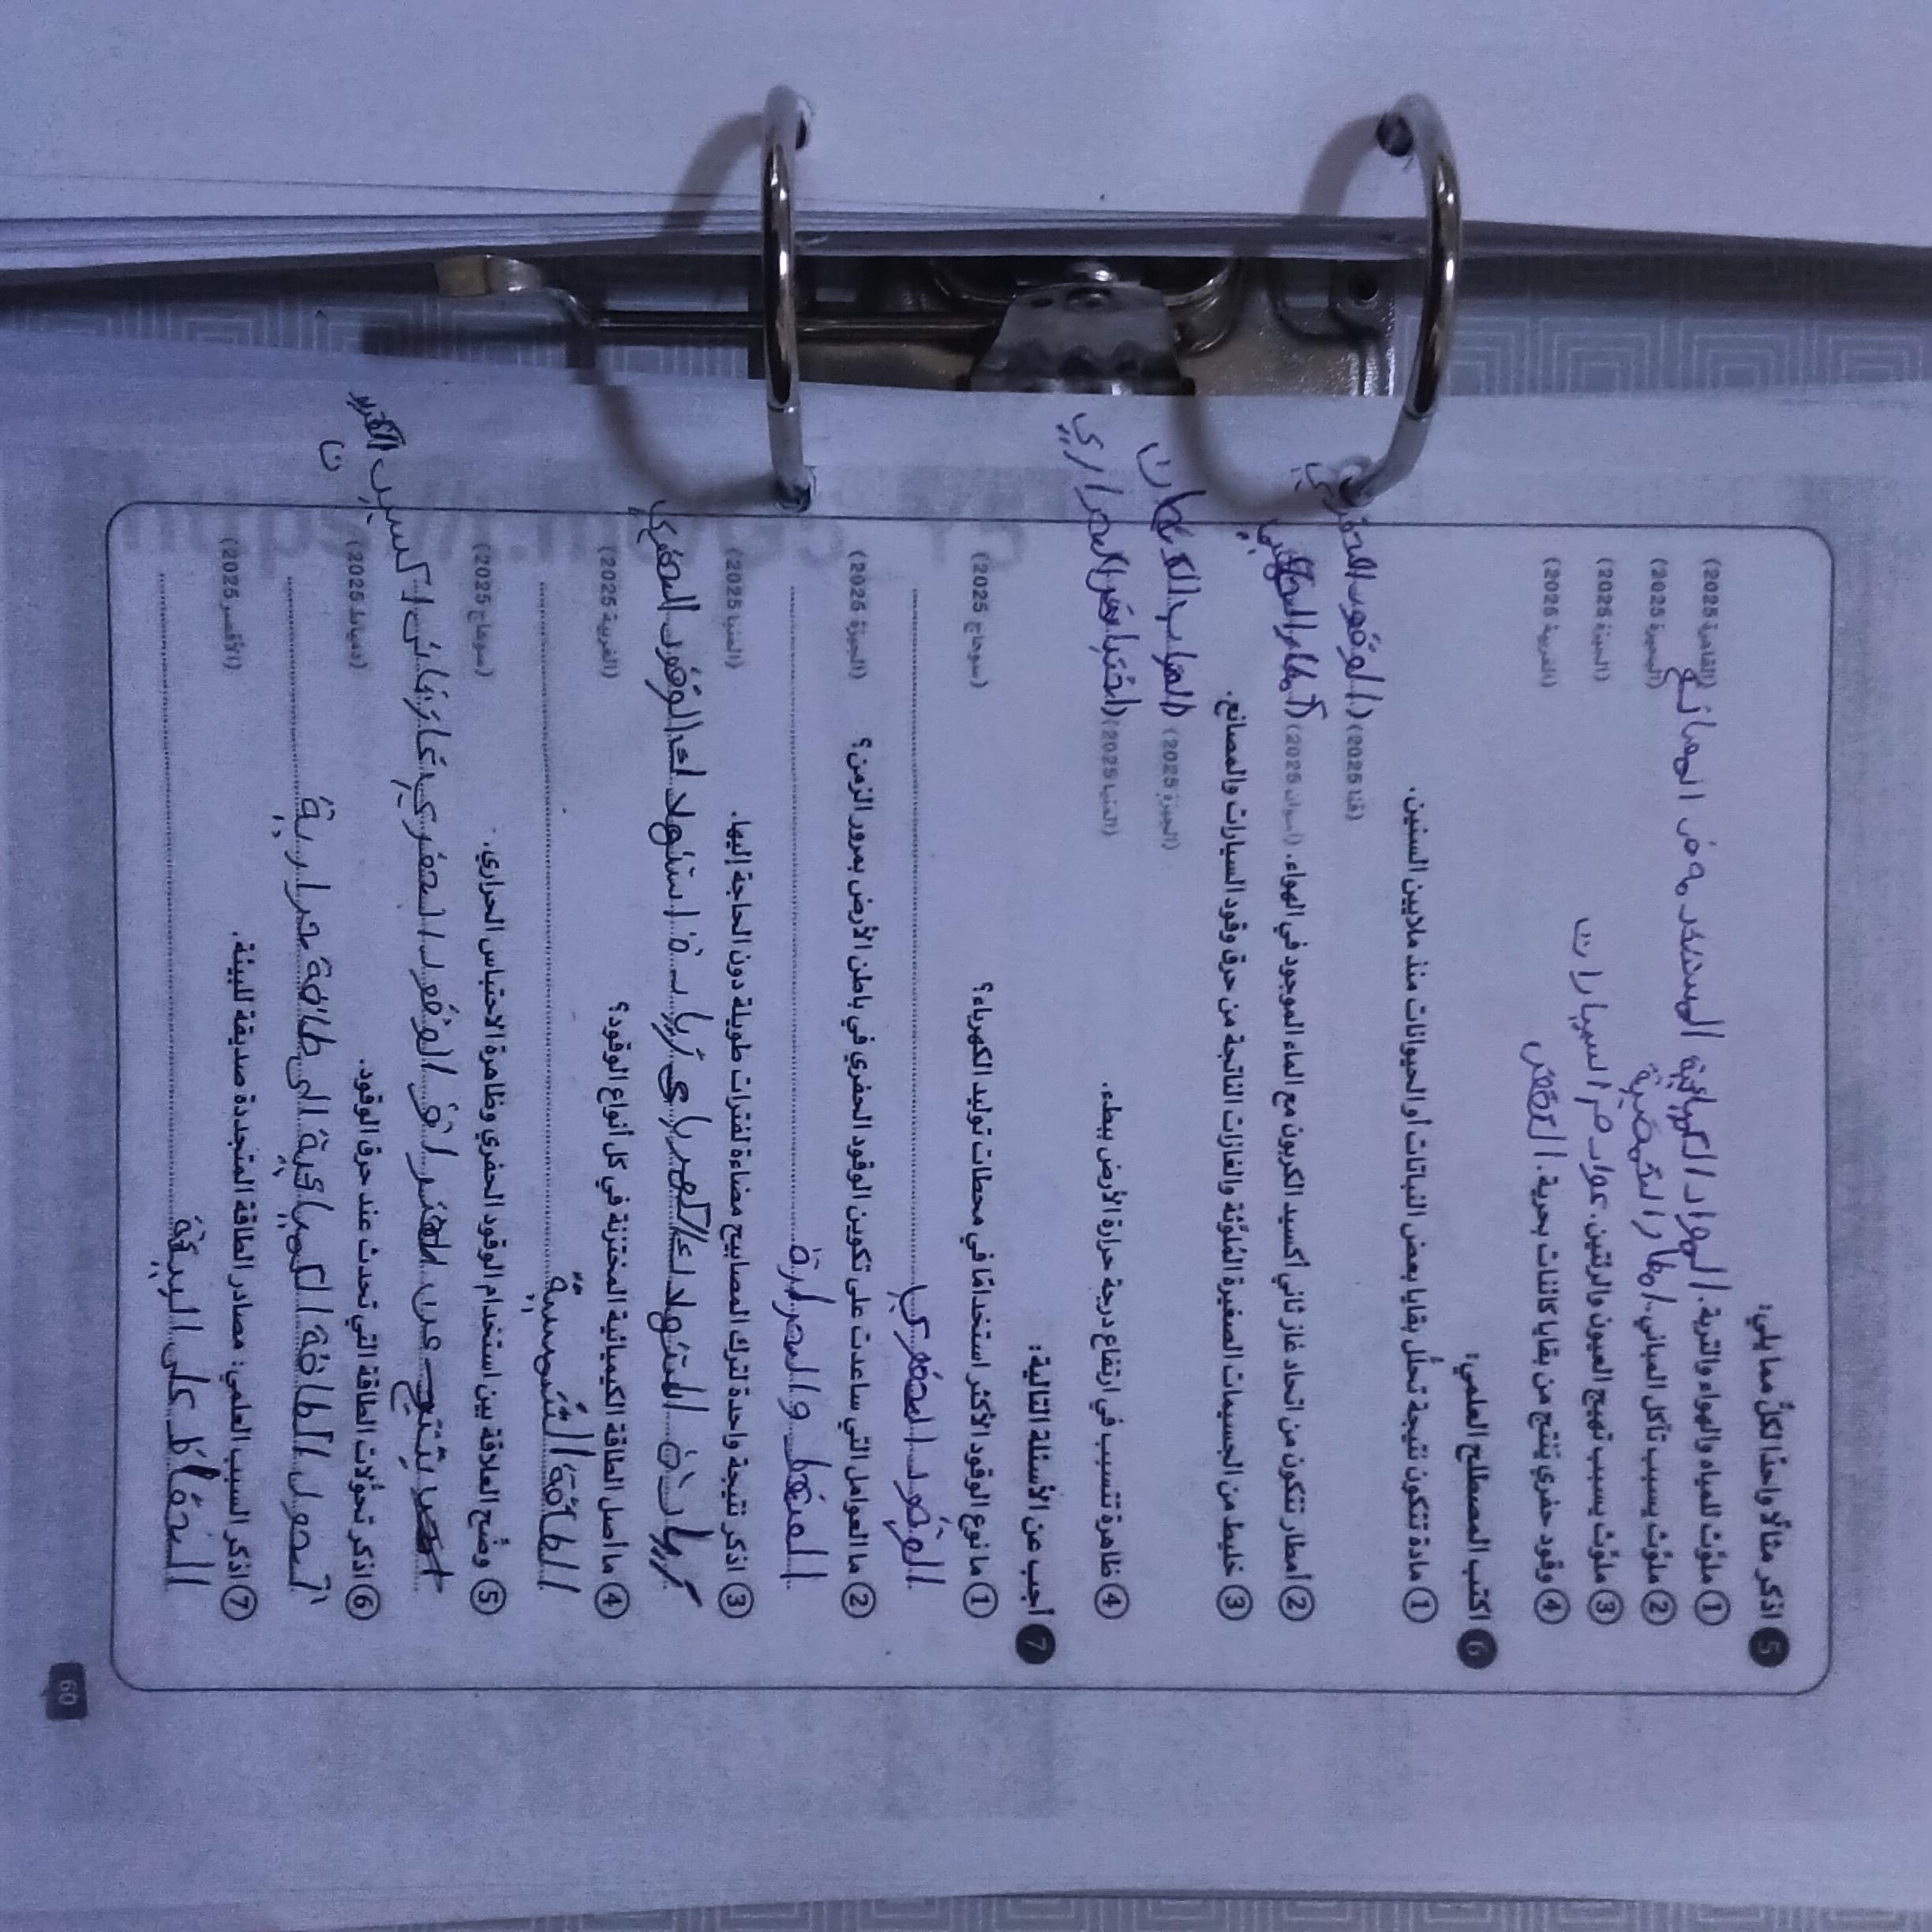 5 اذكر مثالًا واحدًا لكلٍّ مما يلي:
1 ملوِّث للمياه والهواء والتربة. المواد الكيميائية المستخدمة في المصانع (القاهرة 2025)
2 ملوِّث يسبب تآكل المباني. امطار الحمضية (البحيرة 2025)
3 ملوِّث يسبب تهيج العيون والرئتين. عوادم السيارات (الجيزة 2025)
4 وقود حفري ينتج من بقايا كائنات بحرية. النفط (الغربية 2025)
6 اكتب المصطلح العلمي:
1 مادة تتكون نتيجة تحلُّل بقايا بعض النباتات أو الحيوانات منذ ملايين السنين.
(قنا 2025) (الوقود الحفري)
2 أمطار تتكون من اتحاد غاز ثاني أكسيد الكربون مع الماء الموجود في الهواء. (أسوان 2025)
3 خليط من الجسيمات الصغيرة المُلوِّثة والغازات الناتجة من حرق وقود السيارات والمصانع.
(الجيزة 2025) (الضباب الدخان
4 ظاهرة تتسبب في ارتفاع درجة حرارة الأرض ببطء. (المنيا 2025) (احتباس الحراري
7 أجب عن الأسئلة التالية:
1 ما نوع الوقود الأكثر استخدامًا في محطات توليد الكهرباء؟ (سوهاج 2025)
الوقود الحفري
2 ما العوامل التي ساعدت على تكوين الوقود الحفري في باطن الأرض بمرور الزمن؟ (الجيزة 2025)
الضغط والحرارة
3 اذكر نتيجة واحدة لترك المصابيح مضاءة لفترات طويلة دون الحاجة إليها. (المنيا 2025)
زيادة استهلاك الكهرباء زيادة استهلاك الوقود الحفري
4 ما أصل الطاقة الكيميائية المختزنة في كل أنواع الوقود؟ (الغربية 2025)
الطاقة الشمسية
5 وضِّح العلاقة بين استخدام الوقود الحفري وظاهرة الاحتباس الحراري. (سوهاج 2025)
ينتج عن احتراق الوقود الحفري غاز ثاني اكسيد الكربون
6 اذكر تحوُّلات الطاقة التي تحدث عند حرق الوقود. (دمياط 2025)
تحول الطاقة الكيميائية الى طاقة حرارية
7 اذكر السبب العلمي: مصادر الطاقة المتجددة صديقة للبيئة. (الأقصر 2025)
الحفاظ على البيئة
60